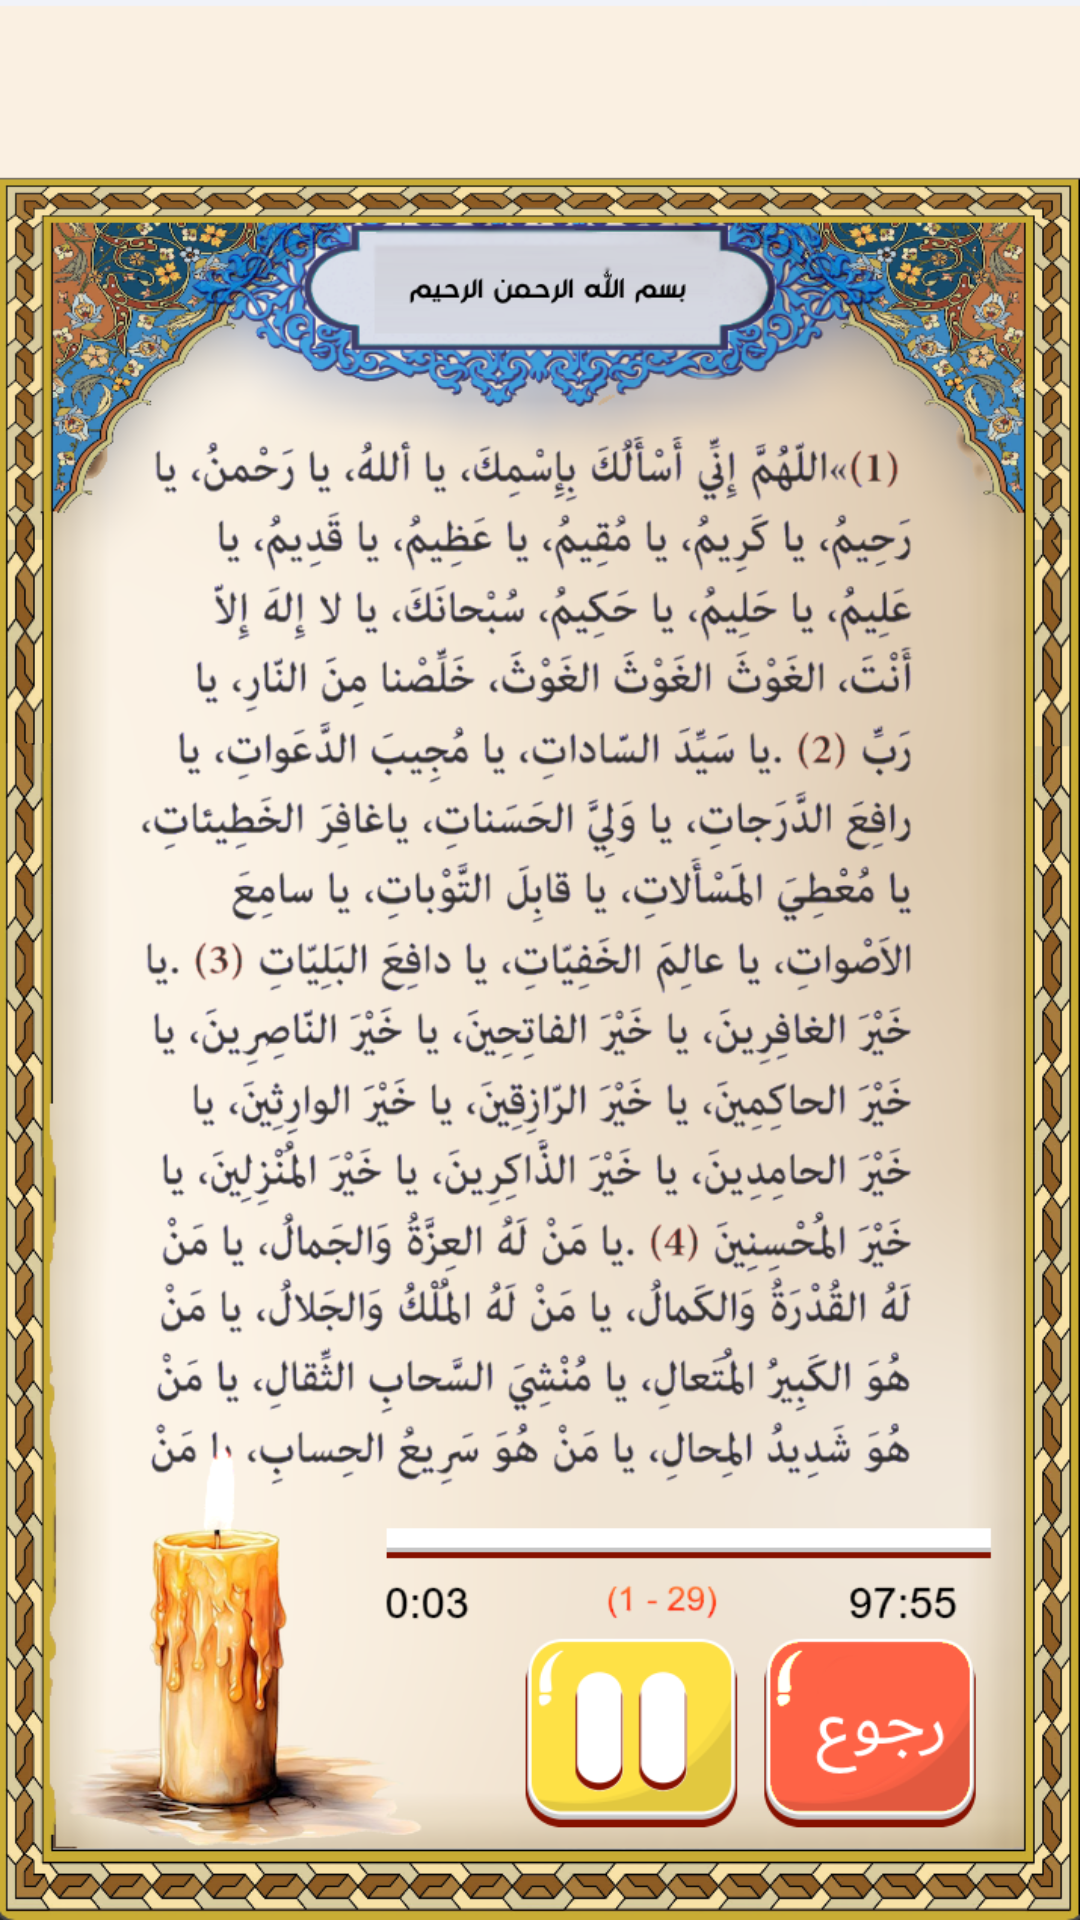 بسم الله الرحمن الرحيم
(1)»اللّهُمَّ إِنِّي أَسْأَلُكَ بِإِسْمِكَ، يا أللهُ، يا رَحْمنُ، يا
رَحِيمُ، يا كَرِيمُ، يا مُقِيمُ، يا عَظِيمُ، يا قَدِيمُ، يا
عَلِيمُ، يا حَلِيمُ، يا حَكِيمُ، سُبْحانَكَ، يا لا إِلهَ إِلاّ
أَنْتَ، الغَوْثَ الغَوْثَ الغَوْثَ، خَلِّصْنا مِنَ النّارِ، يا
رَبِّ (2) .يا سَيِّدَ السّاداتِ، يا مُجِيبَ الدَّعَواتِ، يا
رافِعَ الدَّرَجاتِ، يا وَلِيَّ الحَسَناتِ، ياغافِرَ الخَطِيئاتِ،
يا مُعْطِيَ المَسْأَلاتِ، يا قابِلَ التَّوْباتِ، يا سامِعَ
الاَصْواتِ، يا عالِمَ الخَفِيّاتِ، يا دافِعَ البَلِيّاتِ (3) .يا
خَيْرَ الغافِرِينَ، يا خَيْرَ الفاتِحِينَ، يا خَيْرَ النّاصِرِينَ، يا
خَيْرَ الحاكِمِينَ، يا خَيْرَ الرّازِقِينَ، يا خَيْرَ الوارِثِينَ، يا
خَيْرَ الحامِدِينَ، يا خَيْرَ الذَّاكِرِينَ، يا خَيْرَ المُنْزِلِينَ، يا
خَيْرَ المُحْسِنِينَ (4) .يا مَنْ لَهُ العِزَّةُ وَالجَمالُ، يا مَنْ
لَهُ القُدْرَةُ وَالكَمالُ، يا مَنْ لَهُ المُلْكُ وَالجَلالُ، يا مَنْ
هُوَ الكَبِيرُ المُتَعالِ، يا مُنْشِيَ السَّحابِ الثِّقالِ، يا مَنْ
هُوَ شَدِيدُ المِحالِ، يا مَنْ هُوَ سَرِيعُ الحِسابِ، يا مَنْ
0:03 (1 - 29) 97:55
رجوع